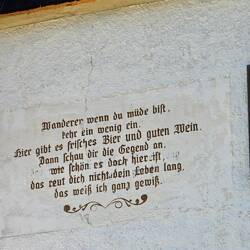 Wanderer wenn du müde bist,
kehr ein wenig ein.
Hier gibt es frisches Bier und guten Wein.
Dann schau dir die Gegend an,
wie schön es doch hier ist,
das reut dich nicht dein Leben lang,
das weiß ich ganz gewiß.